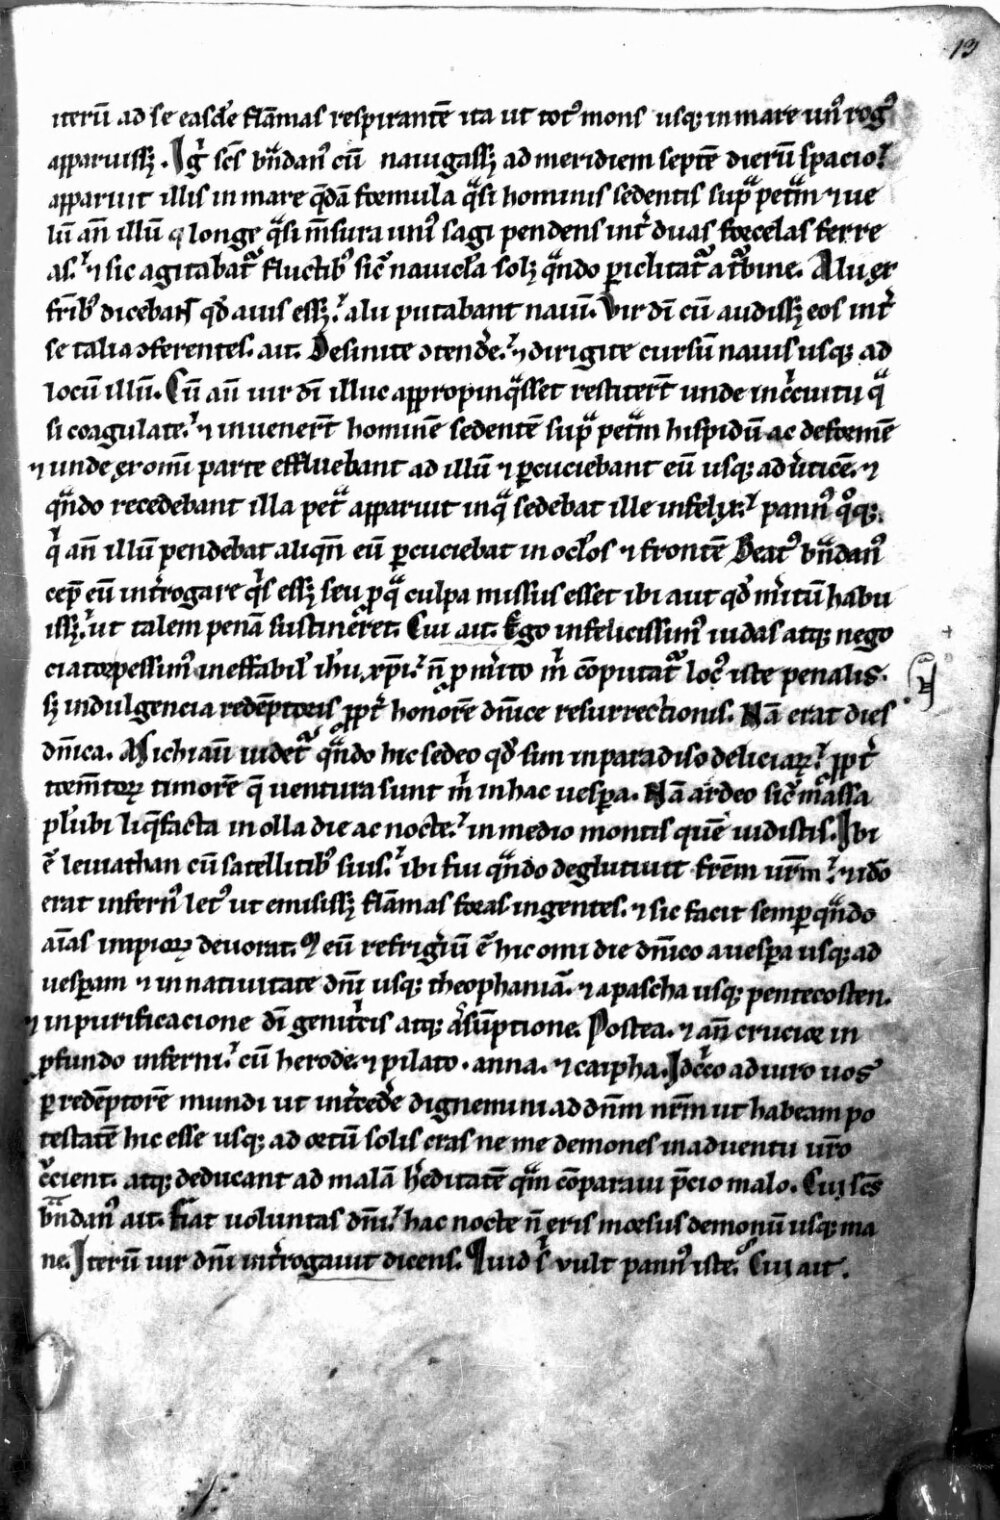 13
iterū ad se easdē flāmas respirantē ita ut totꝰ mons usqꝫ in mare unꝰ rogꝰ
apparuissꝫ. Igͥ scs̄ bͣndanꝰ cū nauigassꝫ ad meridiem septē dierū spacio
apparuit illis in mare qͣdā formula qͣsi hominis sedentis supͣ petͣm ⁊ ue
lū an̄ illū a longe qͣsi mēsura uniꝰ sagi pendens intͥ duas forcelas ferre
as. ⁊ sic agitabatᷣ fluctibꝰ sic̄ nauicła solꝫ qͣndo ꝑiclitatᷣ a tᷣbine. Alii ex
fr̄ibꝰ dicebāt qd̄ auis essꝫ. alii putabant nauī. Vir dī cū audissꝫ eos intͥ
se talia ↄferentes. ait. Desinite ↄtendē. ⁊ dirigite cursū nauis usqꝫ ad
locū illū. Cū aū uir dī illuc appropinqͣsset restiterūt unde in cͥcuitu qͣ
si coagulate. ⁊ inuenerūt hominē sedentē supͣ petͣm hispidū ac deformē
⁊ unde ex omī parte effluebant ad illū ⁊ ꝑcuciebant eū usqꝫ ad uͥticē. ⁊
qͣndo recedebant illa petͣ apparuit in qͣ sedebat ille infelix. pannꝰ qͦqꝫ
qͥ an̄ illū pendebat aliqn̄ eū ꝑcuciebat in ocłos ⁊ frontē Beatꝰ bͣndanꝰ
cep̄ eū intͥrogare qͥs essꝫ seu ꝓ qͣ culpa missus esset ibi aut qd̄ mͥitū habu
issꝫ. ut talem penā sustineret. Cui ait. Ego infelicissimꝰ iudas atqꝫ nego
ciator pessimꝰ ineffabił ihu xp̄i. n̄ ꝓ mͥito m̄ cōputatᷣ locꝰ iste penalis.
sꝫ indulgencia redēptoris ꝓptͥ honorē dn̄ice resurrectionis. Nā erat dies
dn̄ica. M̄ichi aū uidetᷣ qͣndo hic sedeo qd̄ sim in paradiso deliciaꝝ. ꝓptͥ
tormētoꝝ timorē q̄ uentura sunt m̄ in hac uesꝑa. Nā ardeo sic̄ massa
plūbi liq̄facta in olla die ac nocte. in medio montis quē uidistis. Ibi
ē leuiathan cū satellitibꝰ suis. ibi fui qͣndo deglutiuit frēm ur̄m. ⁊ idō
erat infernꝰ letꝰ ut emisissꝫ flāmas foras ingentes. ⁊ sic facit semꝑ qͣndo
aīas impioꝝ deuorat. M eū refrigͥiū ē hic omi die dn̄ico a uesꝑa usqꝫ ad
uesꝑam ⁊ in natiuitate dn̄i usqꝫ theophaniā. ⁊ a pascha usqꝫ pentecosten.
⁊ in purificacione dī genitͥcis atqꝫ assūptione. Postea. ⁊ an̄ crucior in
ꝓfundo inferni. cū herode. ⁊ pilato. anna. ⁊ caipha. Idcͥco adiuro uos
ꝑ redēptorē mundi ut intͥcedē dignemini ad dn̄m nr̄m ut habeam po
testatē hic esse usqꝫ ad ortū solis cras ne me demones in aduentu ur̄o
cͥcient. atqꝫ deducant ad malā hͥeditatē qͣm cōparaui p̄cio malo. Cui scs̄
bͣndanꝰ ait. Fiat uoluntas dn̄i. hac nocte n̄ eris morsus demonū usqꝫ ma
ne. Iterū uir dn̄i intͥrogauit dicens. Quid sͥ vult pannꝰ iste. Cui ait.